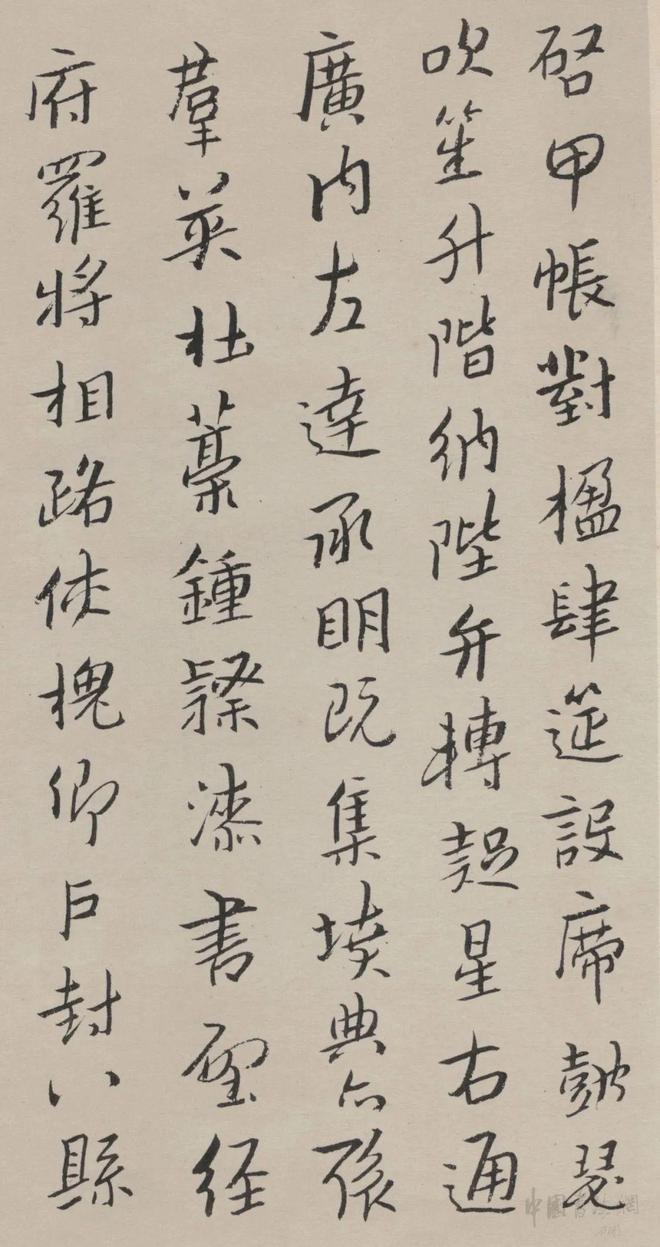 啓甲帳對楹肆筵設席鼓瑟
吹笙升階納陛弁轉疑星右通
廣內左達承明既集墳典亦聚
羣英杜藁鍾隸漆書壁經
府羅將相路俠槐卿戶封八縣
中國書法網